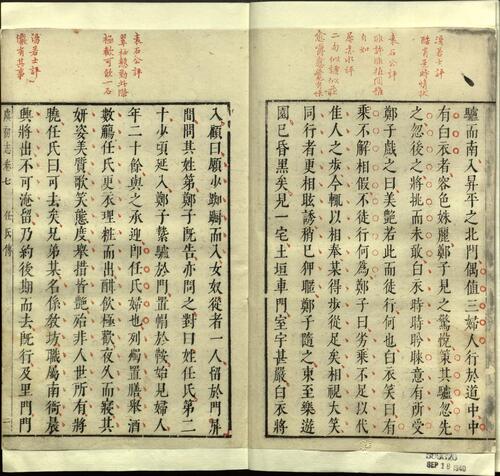 湯若士評
酷肖是時情狀
袁石公評
自如
屠赤水評
二句似謔似莊
驢而南入昇平之北門偶值三婦人行於道中中
有白衣者容色姝麗鄭子見之驚悅策其驢忽先
之忽後之將挑而未敢白衣時時盼睞意有所受
鄭子戲之曰美艷若此而徒行何也白衣笑曰有
乘不解相假不徒行何為鄭子曰劣乘不足以代
佳人之步今輒以相奉某得步從足矣相視大笑
同行者更相眩誘稍已狎暱鄭子隨之東至樂遊
園已昏黑矣見一宅土垣車門室宇甚嚴白衣將
袁石公評
極歡可飲一石
湯若士評
儼有其事
入顧曰願少踟躕而入女奴從者一人留於門屏
間問其姓第鄭子既告亦問之對曰姓任氏第二
十少頃延入鄭子縶驢於門置帽於鞍始見婦人
年二十餘與之承迎即任氏姊也列燭置膳舉酒
數觴任氏更衣理粧而出酣飲極歡夜久而寢其
妍姿美質歌笑態度舉措皆艷殆非人世所有將
曉任氏曰可去矣兄弟某名係教坊職屬南衙晨
興將出不可淹留乃約後期而去既行及里門門
虞初志卷七 任氏傳
SEP 18 1940